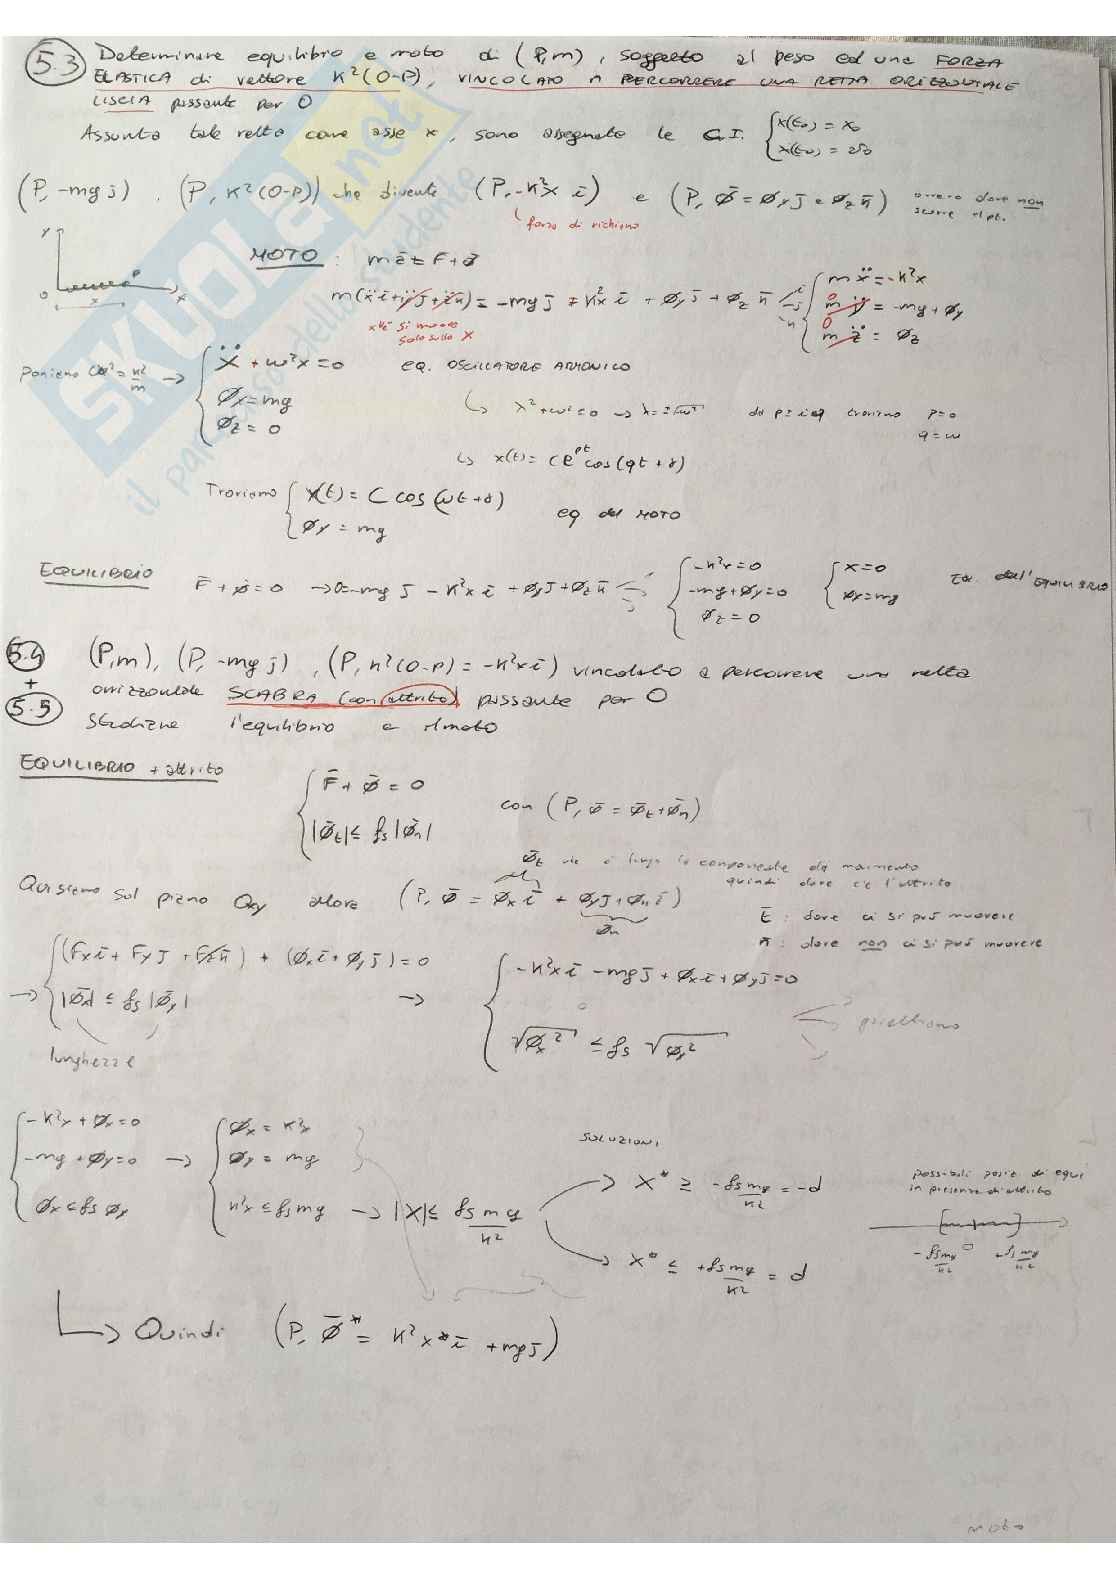 5.3 Determinare equilibrio e moto di (P,m), soggetto al peso ed una FORZA
ELASTICA di vettore K²(O-P), VINCOLATO A PERCORRERE UNA RETTA ORIZZONTALE
LISCIA passante per O
Assunta tale retta come asse x, sono assegnate le C.I. { x(t₀) = x₀
ẋ(t₀) = v₀
(P, -mg j̄) , (P, K²(O-P)) che diventa (P, -K²x ī) e (P, Φ̄ = Φy j̄ + Φz k̄) ovvero dove non
forza di richiamo
MOTO : mā = F + Φ̄
m(ẍ ī + ÿ j̄ + z̈ k̄) = -mg j̄ - K²x ī + Φy j̄ + Φz k̄ → { m ẍ = -K²x
m ÿ = -mg + Φy
m z̈ = Φz
xké si muove
solo sulla x
Poniamo ω² = K²/m → { ẍ + ω²x = 0 EQ. OSCILLATORE ARMONICO
Φx = mg
Φz = 0
↳ λ² + ω² = 0 → λ = ±√-ω² da p ± iq troviamo p = 0
q = ω
↳ x(t) = C e^pt cos(qt + γ)
Troviamo { x(t) = C cos(ωt + γ)
Φy = mg eq del MOTO
EQUILIBRIO F̄ + Φ̄ = 0 → 0 = -mg j̄ - K²x ī + Φy j̄ + Φz k̄ { -K²x = 0
-mg + Φy = 0
Φz = 0
{ x = 0
Φy = mg
EQ. dell'EQUILIBRIO
5.4 + 5.5 (P,m), (P, -mg j̄) , (P, K²(O-P) = -K²x ī) vincolato a percorrere una retta
orizzontale SCABRA (con attrito) passante per O
Studiarne l'equilibrio e il moto
EQUILIBRIO + attrito { F̄ + Φ̄ = 0
|Φ̄t| ≤ fs |Φ̄n|
con (P, Φ̄ = Φ̄t + Φ̄n)
quindi dove c'è l'attrito
Qui siamo sul piano Oxy allora (P, Φ̄ = Φx ī + Φy j̄ + Φz k̄)
Φ̄n
t̄ : dove ci si può muovere
n̄ : dove non ci si può muovere
→ { (Fx ī + Fy j̄ + Fz k̄) + (Φx ī + Φy j̄) = 0
|Φ̄x| ≤ fs |Φ̄y|
lunghezze
→ { -K²x ī - mg j̄ + Φx ī + Φy j̄ = 0
√Φx² ≤ fs √Φy²
proiettiamo
{ -K²x + Φx = 0
-mg + Φy = 0
Φx ≤ fs Φy
→ { Φx = K²x
Φy = mg
K²x ≤ fs mg → |x| ≤ fs mg/K²
SOLUZIONI
→ x* ≥ -fs mg/K² = -d
→ x* ≤ +fs mg/K² = d
possibili posiz. di equi
in presenza di attrito
-fs mg/K² 0 +fs mg/K²
↳ Quindi (P, Φ̄* = K²x* ī + mg j̄)
moto
SKUOLA.net
il paradiso dello studente